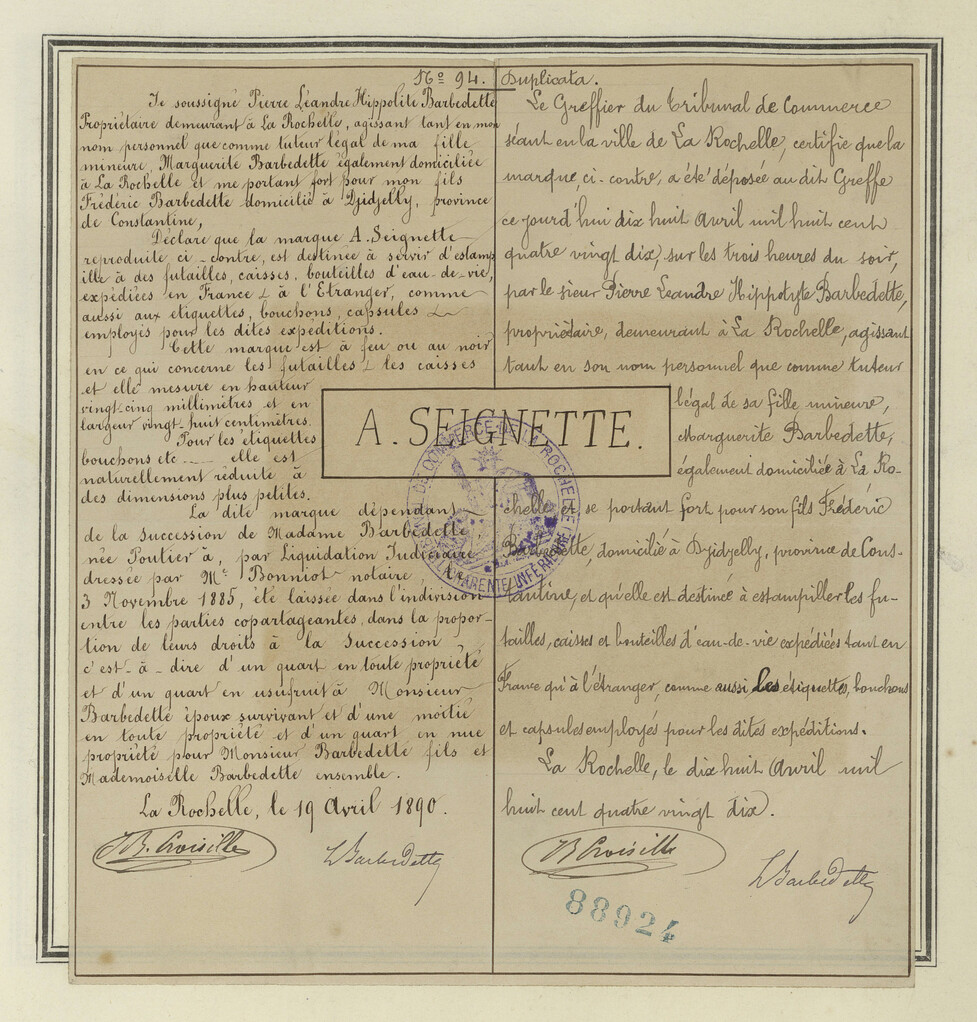 Nº 94. Duplicata.
Je soussigné Pierre Léandre Hippolite Barbedette
Propriétaire demeurant à La Rochelle, agissant tant en mon
nom personnel que comme tuteur légal de ma fille
mineure, Marguerite Barbedette également domiciliée
à La Rochelle et me portant fort pour mon fils
Frédéric Barbedette domicilié à Djidjelly, province
de Constantine,
Déclare que la marque A. Seignette
reproduite ci-contre, est destinée à servir d'estamp
ille à des futailles, caisses, bouteilles d'eau-de-vie,
expédiées en France & à l'Etranger, comme
aussi aux etiquettes, bouchons, capsules
employés pour les dites expeditions.
Cette marque est à feu ou au noir
en ce qui concerne les futailles & les caisses
et elle mesure en hauteur
vingt-cinq millimètres et en
largeur vingt-huit centimètres.
Pour les étiquettes
bouchons etc elle est
naturellement réduite à
des dimensions plus petites.
La dite marque dépendant
de la succession de Madame Barbedette
née Poutier à, par Liquidation Judiciaire
dressée par Me Bonniot notaire,
3 Novembre 1885, été laissée dans l'indivision
entre les parties copartageantes, dans la propor-
tion de leurs droits à la Succession
c'est-à-dire d'un quart en toute propriété
et d'un quart en usufruit à Monsieur
Barbedette époux survivant et d'une moitié
en toute propriété et d'un quart en nue
propriété pour Monsieur Barbedette fils et
Mademoiselle Barbedette ensemble.
La Rochelle, le 19 Avril 1890.
JB. Croisille
L Barbedette
A. SEIGNETTE.
Le Greffier du Tribunal de Commerce
séant en la ville de La Rochelle, certifie que la
marque, ci-contre, a été déposée au dit Greffe
ce jourd'hui dix huit Avril mil huit cent
quatre vingt dix, sur les trois heures du soir,
par le sieur Pierre Leandre Hippolyte Barbedette,
propriétaire, demeurant à La Rochelle, agissant
tant en son nom personnel que comme tuteur
légal de sa fille mineure,
Marguerite Barbedette,
également domiciliée à La Ro-
chelle et se portant fort pour son fils Frédéric
Barbedette, domicilié à Djidjelly, province de Cons-
tantine, et qu'elle est destiné à estampiller les fu-
tailles, caisses et bouteilles d'eau-de-vie expédiées tant en
France qu'à l'étranger, comme aussi les étiquettes, bouchons
et capsules employés pour les dites expéditions.
La Rochelle, le dix huit Avril mil
huit cent quatre vingt dix.
JB Croisille
L Barbedette
88924
DE COMMERCE DE LA ROCHELLE
CHARENTE INFERIEURE